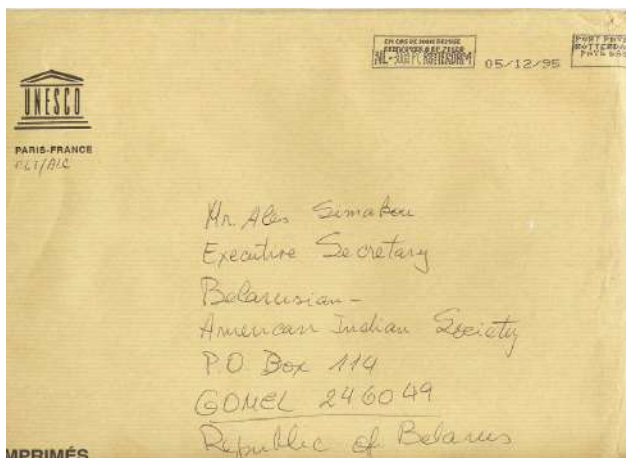 EN CAS DE NON REMISE
NL-3000 ROTTERDAM
05/12/95
PORT PAYE
ROTTERDA
PAYS BAS
UNESCO
PARIS-FRANCE
CLT/AIC
Mr. Ales Simakou
Executive Secretary
Belarusian-
American Indian Society
P.O. Box 114
GOMEL 246049
Republic of Belarus
MPRIMÉS